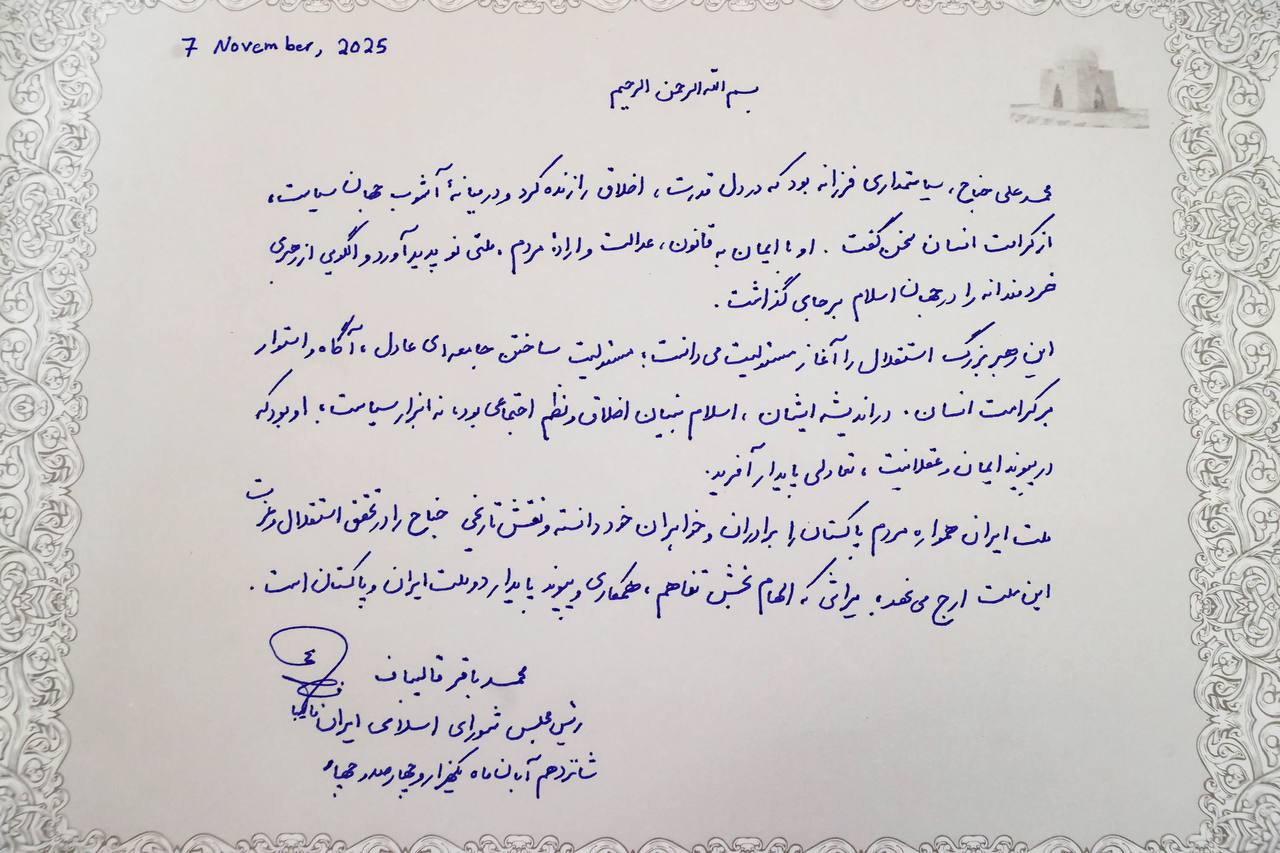 7 November, 2025
بسم الله الرحمن الرحیم
محمد علی جناح، سیاستمداری فرزانه بود که در دل قدرت، اخلاق را زنده کرد و در میانهٔ آشوب جهان سیاست،
از کرامت انسان سخن گفت. او با ایمان به قانون، عدالت و ارادهٔ مردم، ملتی نو پدید آورد و الگویی از رهبری
خردمندانه را در جهان اسلام برجای گذاشت.
این رهبر بزرگ استقلال را آغاز مسئولیت می‌دانست؛ مسئولیت ساختن جامعه‌ای عادل، آگاه و استوار
بر کرامت انسان. در اندیشه ایشان، اسلام بنیان اخلاق و نظم اجتماعی بود، نه ابزار سیاست؛ او بود که
در پیوند ایمان و عقلانیت، تعادلی پایدار آفرید.
ملت ایران همواره مردم پاکستان را برادران و خواهران خود دانسته و نقش تاریخی جناح را در تحقق استقلال و عزت
این ملت ارج می‌نهد؛ میراثی که الهام بخش تفاهم، همکاری و پیوند پایدار دو ملت ایران و پاکستان است.
محمد باقر قالیباف
رئیس مجلس شورای اسلامی ایران
شانزدهم آبان ماه یکهزار و چهارصد و چهار